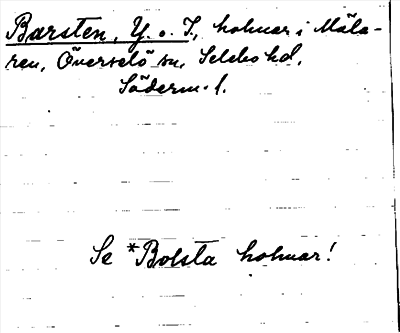 Barsten, Y. o. I., holmar i Mäla-
ren, Överselö sn, Selebo hd,
Söderm. l.
Se *Bolsta holmar!